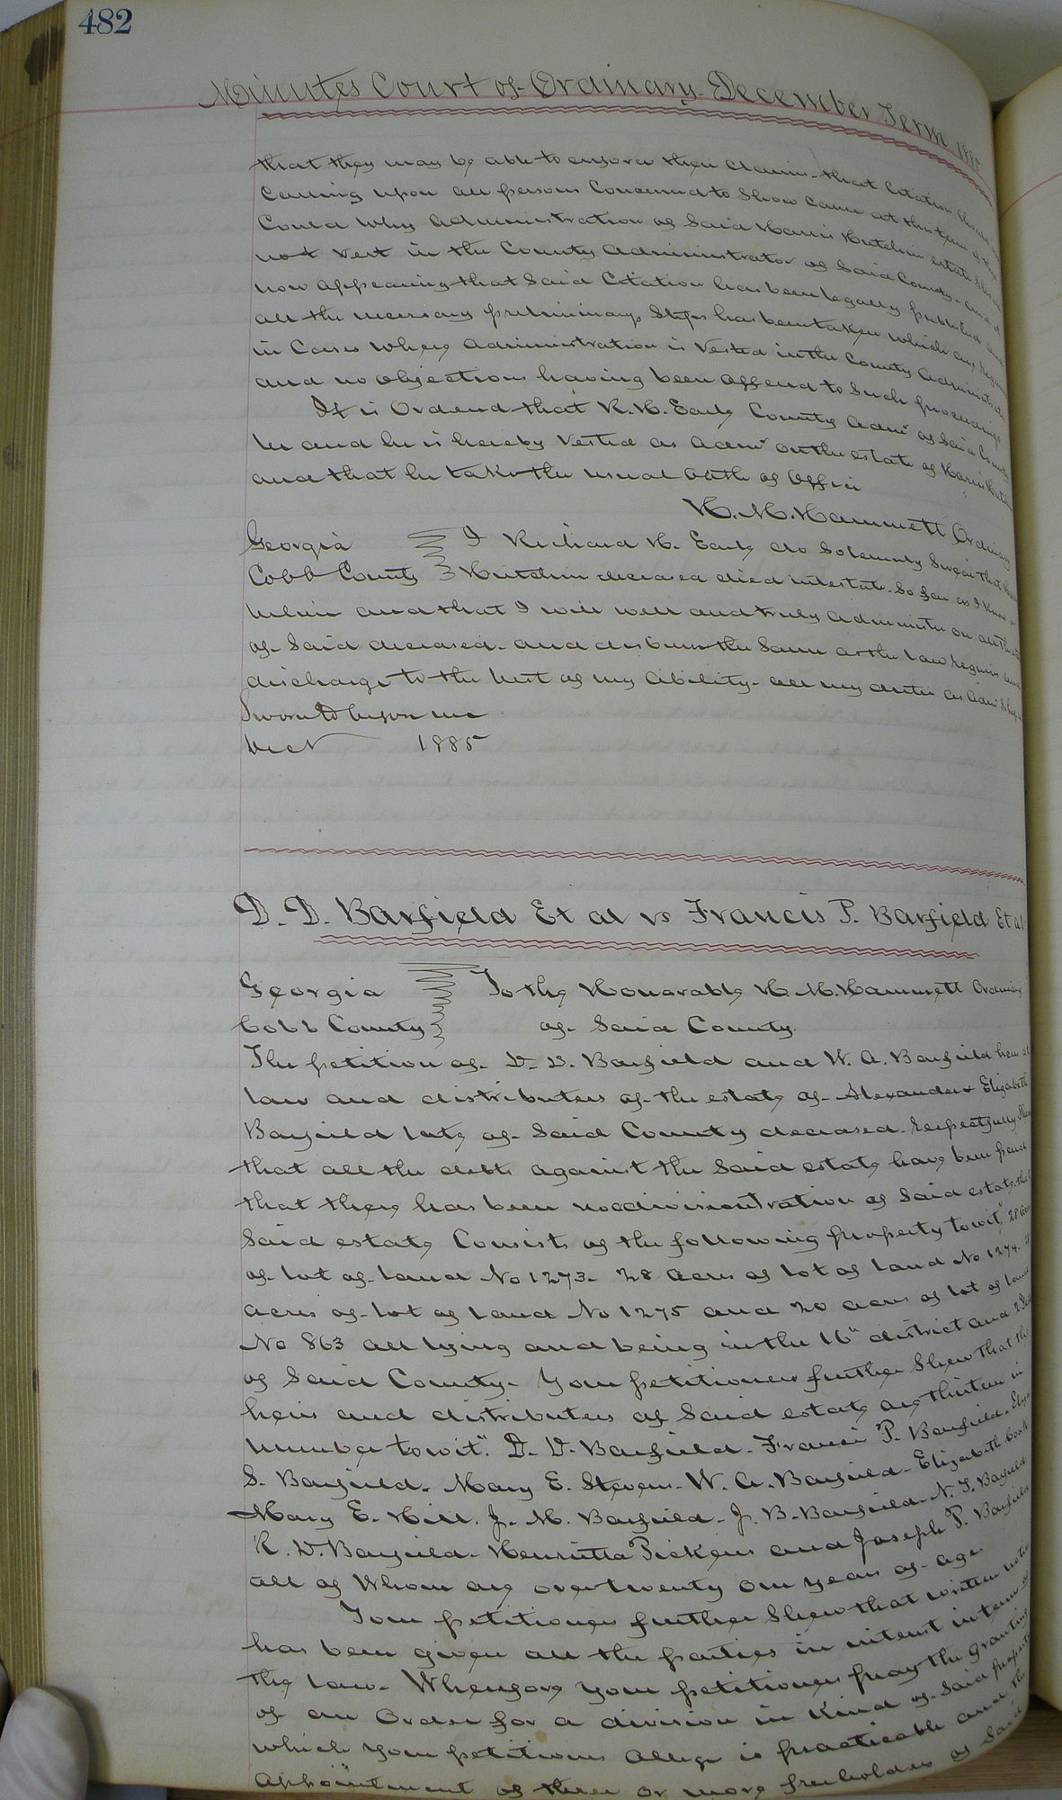 482
Minutes Court of Ordinary December Term 1885
that they may be able to enforce their claims. that Citation issued
Calling upon all persons Concerned to Show Cause at this term of the
Could why Administration of Said Harris Hutchin estate should
not Vest in the County Administrator of Said County. and it
now appearing that Said Citation has been legally published and
all the necessary preliminary Steps has been taken which are
in Cases where Administration is Vested in the County Administrator
and no objections having been offered to Such proceedings
It is Ordered that R. H. Early County Admr of Said County
be and he is hereby Vested as Admr on the estate of Harris
and that he take the usual oath of office
H. M. Hammett Ordinary
Georgia I Richard H. Early do Solemnly Swear that
Cobb County Hutchin deceased died intestate. So far as I know or
believe and that I will well and truly administer on all the
of Said deceased. and disburse the Same as the law requires and
discharge to the best of my ability. all my duties as Admr
Sworn to before me
Dect 1885
D. D. Barfield Et al vs Francis P. Barfield Et al
Georgia To the Honorable H. M. Hammett Ordinary
Cobb County of Said County.
The petition of D. D. Barfield and W. A. Barfield heirs at
law and distributees of the estate of Alexander & Elizabeth
Barfield late of Said County deceased. respectfully Shew
that all the debts against the Said estate have been paid
that there has been no administration of Said estate. that
Said estate Consists of the following property towit"
of lot of land No 1273. 28 acres of lot of land No 1274.
acres of lot of land No 1275 and 20 acres of lot of land
No 863 all lying and being in the 16" district and 2
of Said County. Your petitioners further Shew that the
heirs and distributees of Said estate are thirteen in
number towit". D. D. Barfield. Francis P. Barfield.
S. Barfield. Mary E. Stevens. W. A. Barfield. Elizabeth Cook
Mary E. Hill. J. M. Barfield. J. B. Barfield. N. T. Barfield
R. D. Barfield. Henrietta Pickens and Joseph P. Barfield
all of Whom are over twenty one years of age.
Your petitioners further Shew that written notice
has been given all the parties in interest in terms of
the law. Wherefore your petitioners pray the Granting
of an Order for a division in Kind of Said property
which your petitioners allege is practicable and the
appointment of three or more freeholders of Said